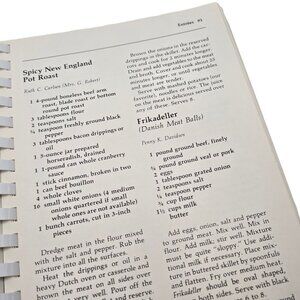 Entrées 93
Spicy New England
Pot Roast
Ruth C. Carlson (Mrs. G. Robert)
1 4-pound boneless beef arm
roast, blade roast or bottom
round pot roast
3 tablespoons flour
2 teaspoons salt
¼ teaspoon freshly ground black
pepper
3 tablespoons bacon drippings or
oil
1 5-ounce jar prepared
horseradish, drained
1 1-pound can whole cranberry
sauce
1 stick cinnamon, broken in two
1 can beef bouillon
4 whole cloves
16 small white onions (4 medium
onions quartered if small
whites not available)
1 bunch carrots, cut in 3-inch
pieces
Dredge meat in the flour mixed
with the salt and pepper. Rub the
mixture into all the surfaces.
Heat the drippings or oil in a
heavy Dutch oven or casserole and
brown the meat on all sides over
Brown the onions in the reserved
drippings in the skillet. Add the
carrots and cook for 2 minutes longer.
Drain and add vegetables to the meat
and broth. Cover and cook about 25
minutes longer or until vegetables
and meat are tender.
Serve with mashed potatoes (our
favorite), noodles or rice. The juice on
the meat is delicious served over
any of these. Serves 8.
Frikadeller
(Danish Meat Balls)
Penny K. Davidsen
1 pound ground beef, finely
ground
¾ pound ground veal or pork
2 eggs
1 tablespoon grated onion
2 teaspoons salt
¼ teaspoon pepper
¾ cup flour
1½ cups milk
butter
Add eggs, onion, salt and pepper
to ground meat. Mix well. Mix in
flour. Add milk; stir well. Mixture
must be quite "sloppy." Use additional
milk if necessary. Place mixture
in buttered skillet by spoonfuls
and flatten. Fry over medium heat.
Frikadeller should be oval shaped,